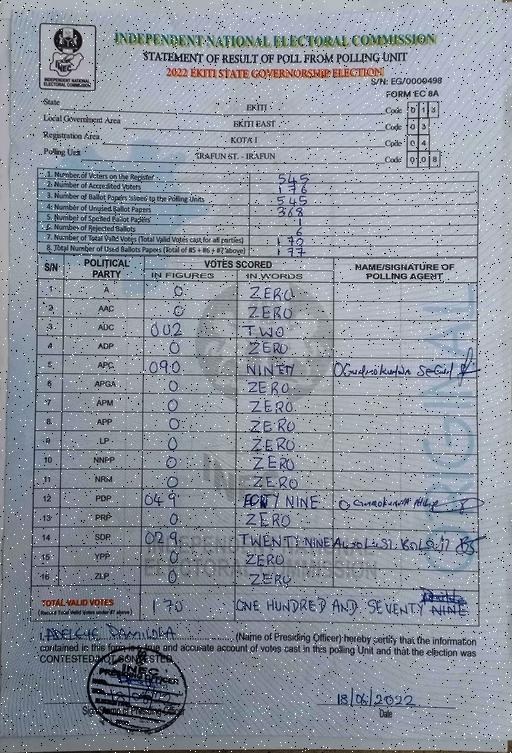 INDEPENDENT NATIONAL ELECTORAL COMMISSION
STATEMENT OF RESULT OF POLL FROM POLLING UNIT
2022 EKITI STATE GOVERNORSHIP ELECTION
INEC
INDEPENDENT NATIONAL
ELECTORAL COMMISSION
S/N: EG/0000498
FORM EC 8A
State EKITI Code 013
Local Government Area EKITI EAST Code 03
Registration Area KOTA I Code 04
Polling Unit IRAFUN ST. - IRAFUN Code 008
1. Number of Voters on the Register 545
2. Number of Accredited Voters 176
3. Number of Ballot Papers Issued to the Polling Units 545
4. Number of Unused Ballot Papers 368
5. Number of Spoiled Ballot Papers 1
6. Number of Rejected Ballots 6
7. Number of Total Valid Votes (Total Valid Votes cast for all parties) 170
8. Total Number of Used Ballots Papers (Total of #5 + #6 + #7 above) 177
S/N POLITICAL PARTY VOTES SCORED NAME/SIGNATURE OF POLLING AGENT
IN FIGURES IN WORDS
1 A 0 ZERO
2 AAC 0 ZERO
3 ADC 002 TWO
4 ADP 0 ZERO
5 APC 090 NINETY
6 APGA 0 ZERO
7 APM 0 ZERO
8 APP 0 ZERO
9 LP 0 ZERO
10 NNPP 0 ZERO
11 NRM 0 ZERO
12 PDP 049 FORTY NINE
13 PRP 0 ZERO
14 SDP 029 TWENTY NINE
15 YPP 0 ZERO
16 ZLP 0 ZERO
TOTAL VALID VOTES 170 ONE HUNDRED AND SEVENTY NINE
(Record Total Valid Votes under #7 above)
I, ADELEYE DAMILOLA (Name of Presiding Officer) hereby certify that the information
contained in this form is a true and accurate account of votes cast in this polling Unit and that the election was
CONTESTED/NOT CONTESTED
INEC
18/06/2022
Date
ORIGINAL